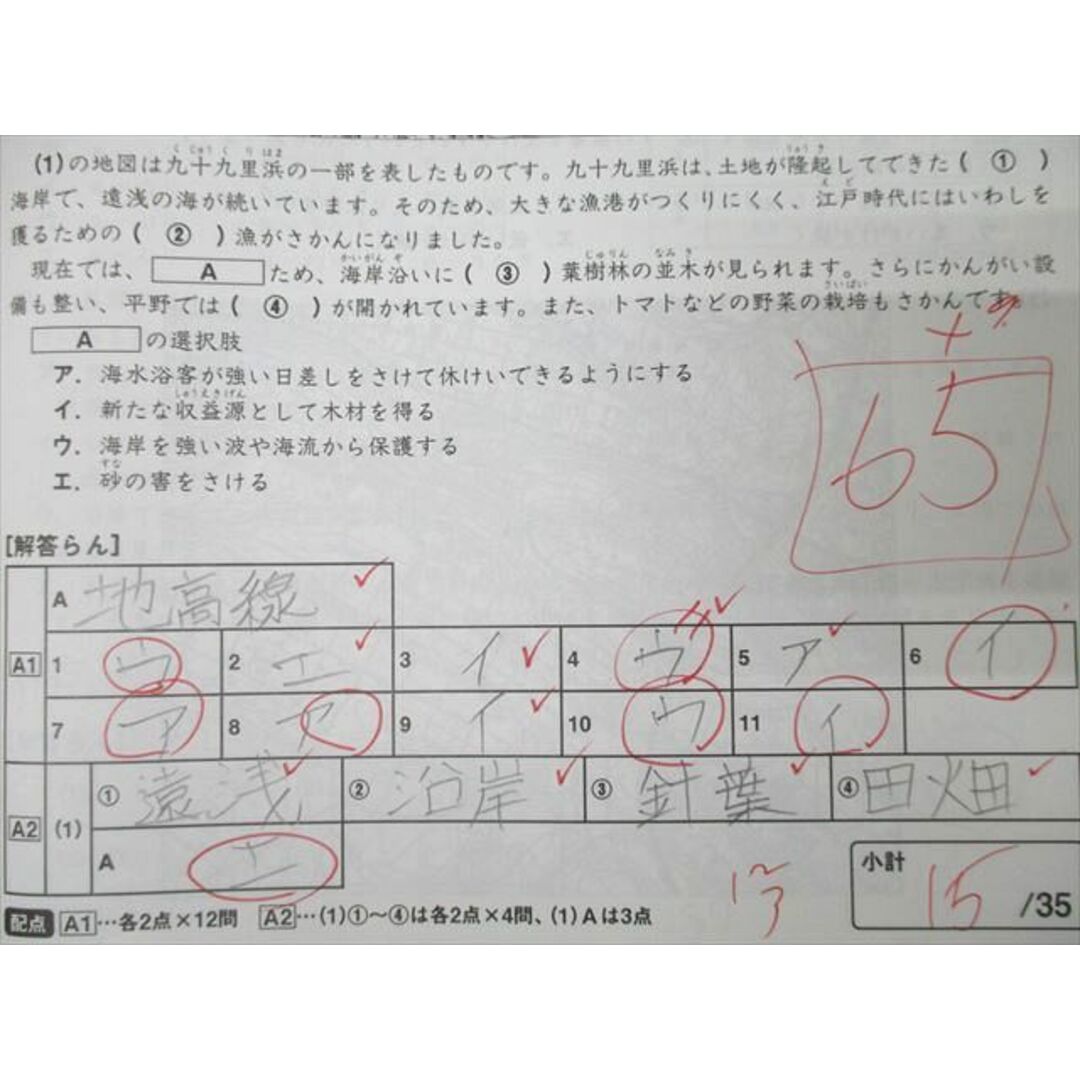 (1)の地図は九十九里浜の一部を表したものです。九十九里浜は、土地が隆起してできた( ① )
海岸で、遠浅の海が続いています。そのため、大きな漁港がつくりにくく、江戸時代にはいわしを
獲るための( ② )漁がさかんになりました。
現在では、 A ため、海岸沿いに( ③ )葉樹林の並木が見られます。さらにかんがい設
備も整い、平野では( ④ )が開かれています。また、トマトなどの野菜の栽培もさかんです。
A の選択肢
ア. 海水浴客が強い日差しをさけて休けいできるようにする
イ. 新たな収益源として木材を得る
ウ. 海岸を強い波や海流から保護する
エ. 砂の害をさける
65
[解答らん]
A 地高線
A1 1 ウ 2 エ 3 イ 4 ウ 5 ア 6 イ
7 ア 8 ア 9 イ 10 ウ 11 イ
A2 (1) ① 遠浅 ② 沿岸 ③ 針葉 ④ 田畑
A エ
小計 15 /35
配点 A1…各2点×12問 A2…(1)①〜④は各2点×4問、(1)Aは3点